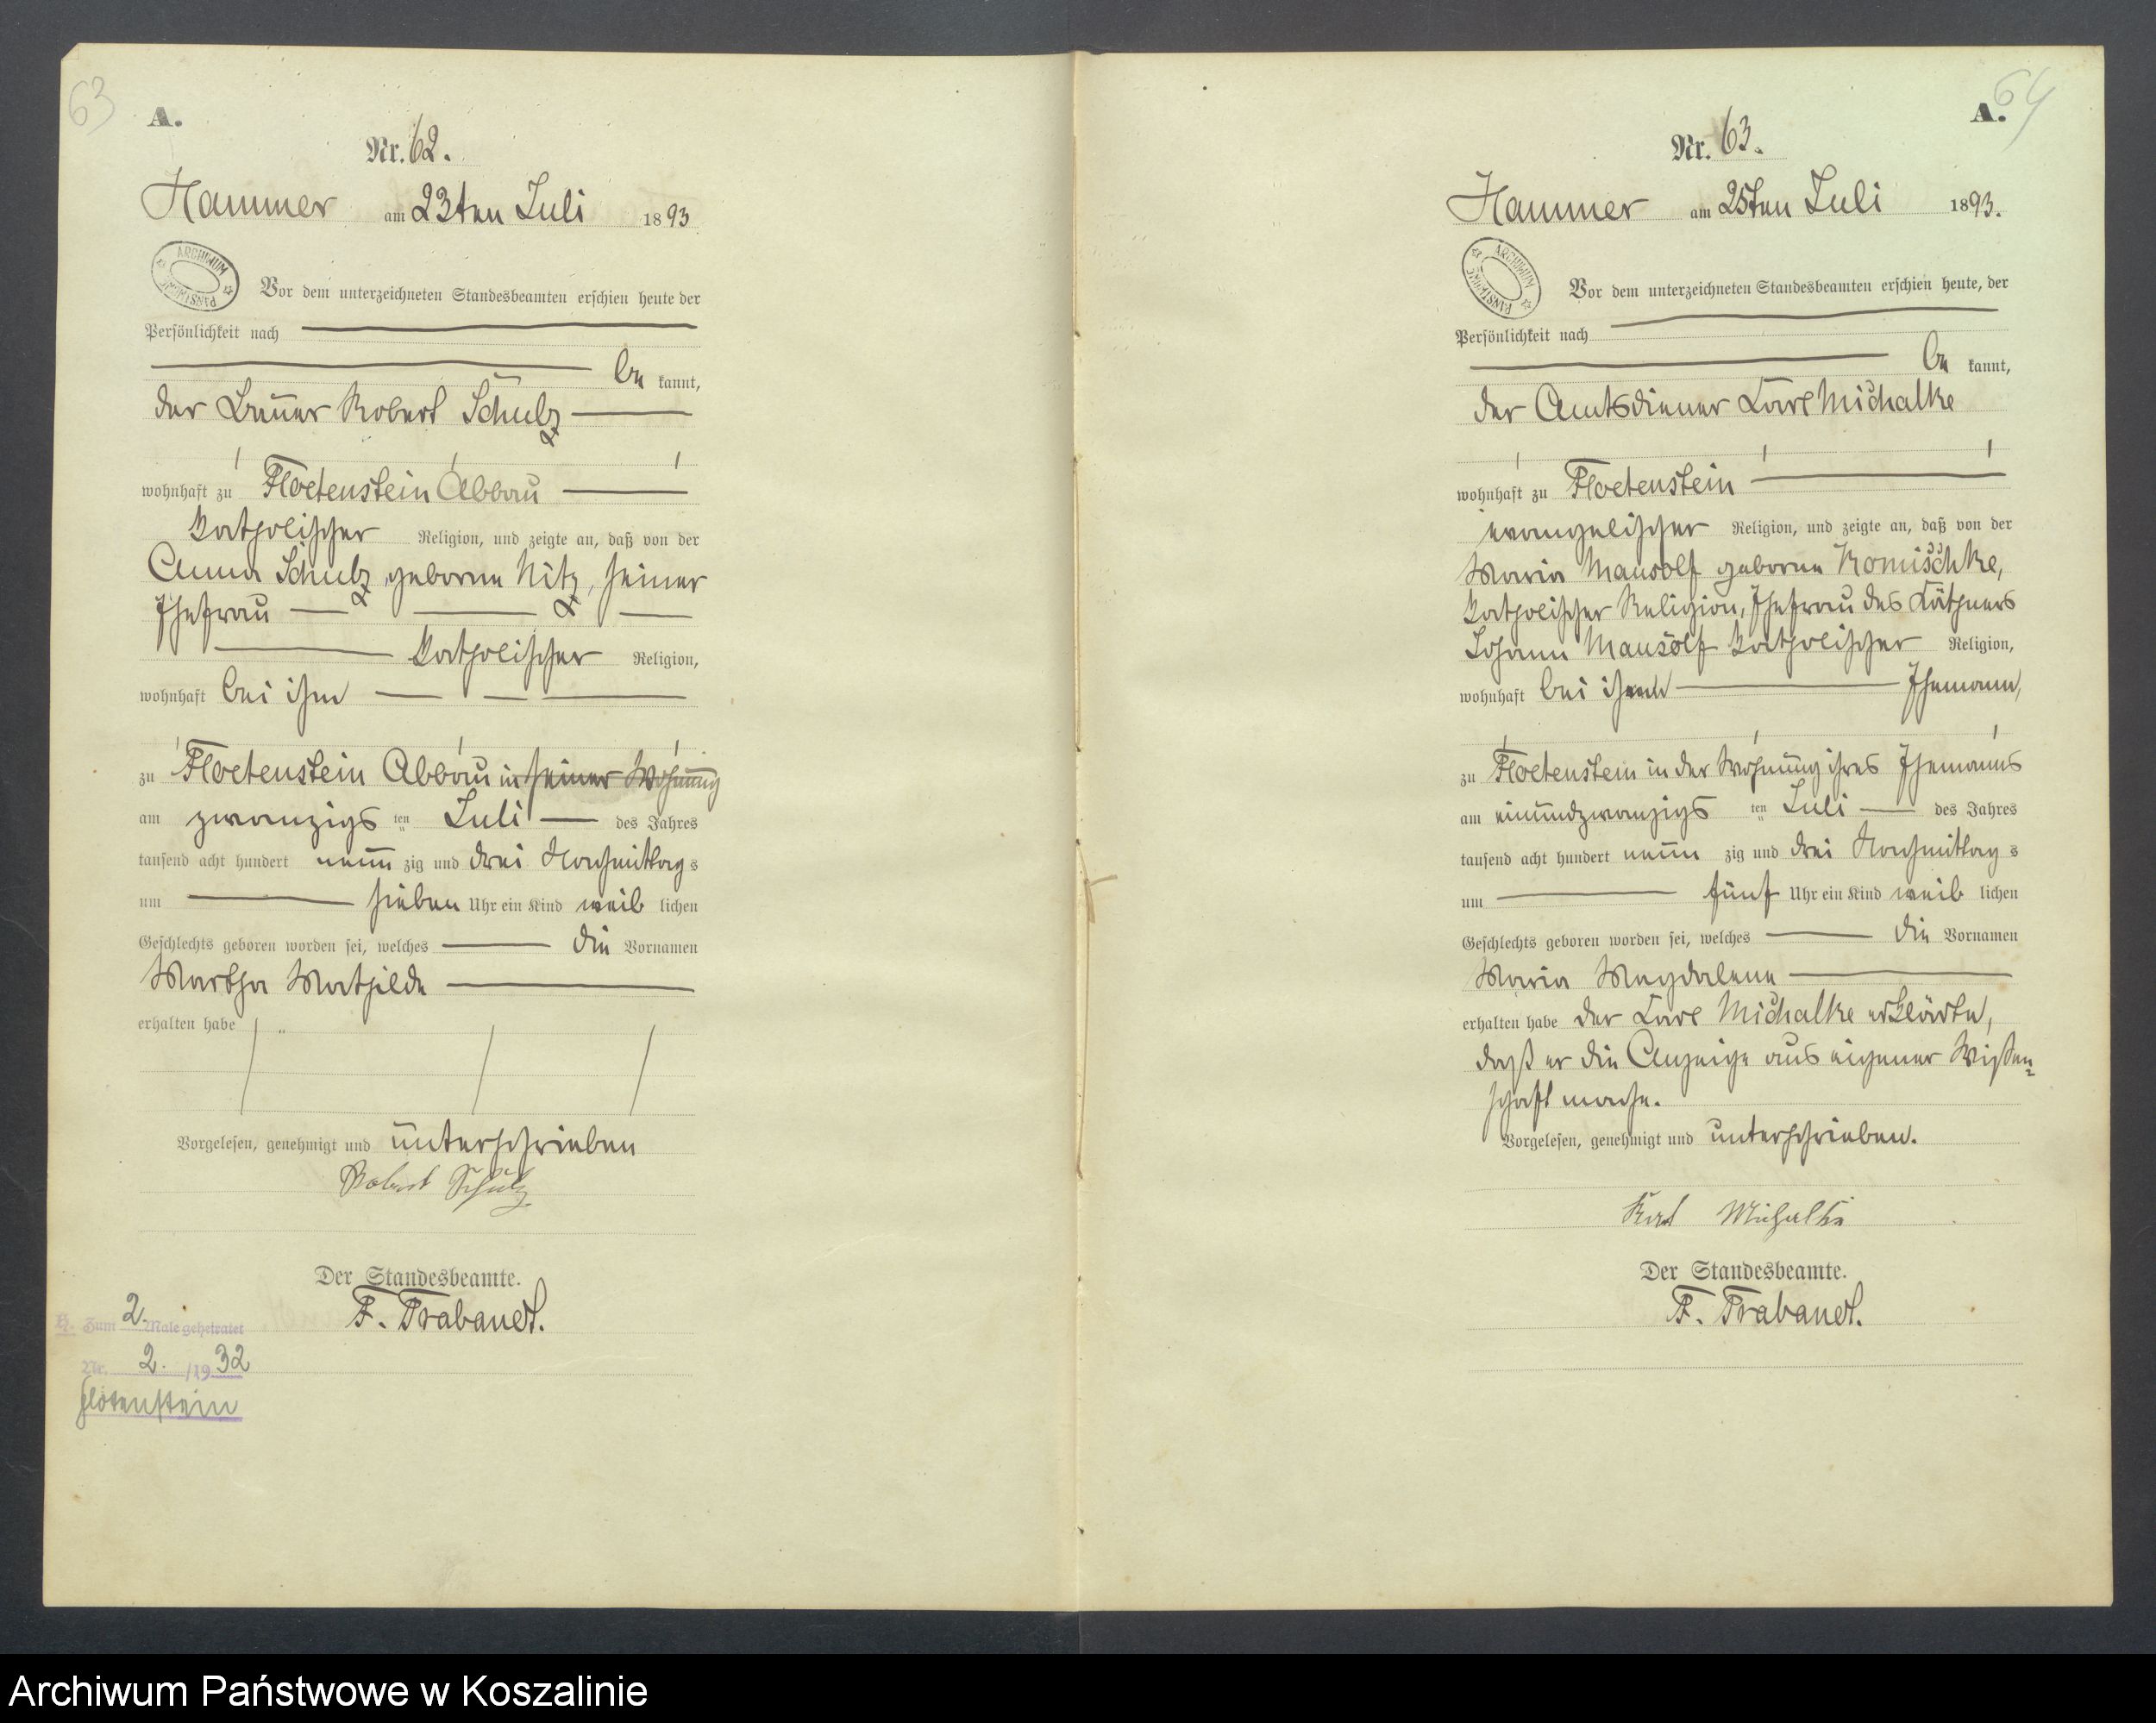 63
A.
Nr. 62.
Hammer am 23ten Juli 1893
ARCHIWUM PAŃSTWOWE
Vor dem unterzeichneten Standesbeamten erschien heute der
Persönlichkeit nach
be kannt,
der Bauer Robert Schulz
wohnhaft zu Floetenstein Abbau
katholischer Religion, und zeigte an, daß von der
Anna Schulz, geborne Nitz, seiner
Ehefrau
katholischer Religion,
wohnhaft bei ihm
zu Floetenstein Abbau in seiner Wohnung
am zwanzigs ten Juli des Jahres
tausend acht hundert neun zig und drei Nachmittag s
um sieben Uhr ein Kind weib lichen
Geschlechts geboren worden sei, welches die Vornamen
Martha Mathilde
erhalten habe
Vorgelesen, genehmigt und unterschrieben
Robert Schulz
Der Standesbeamte.
F. Trabandt.
H. Zum 2. Male geheiratet
Nr. 2. /1932
Flötenstein
64
A.
Nr. 63.
Hammer am 25ten Juli 1893.
ARCHIWUM PAŃSTWOWE
Vor dem unterzeichneten Standesbeamten erschien heute, der
Persönlichkeit nach
be kannt,
der Amtsdiener Carl Michalke
wohnhaft zu Floetenstein
evangelischer Religion, und zeigte an, daß von der
Maria Mausolf geborne Komischke,
katholischer Religion, Ehefrau des Käthners
Johann Mausolf katholischer Religion,
wohnhaft bei ihrem Ehemann,
zu Floetenstein in der Wohnung ihres Ehemanns
am einundzwanzigs ten Juli des Jahres
tausend acht hundert neun zig und drei Nachmittag s
um fünf Uhr ein Kind weib lichen
Geschlechts geboren worden sei, welches die Vornamen
Maria Magdalene
erhalten habe der Carl Michalke erklärte,
daß er die Anzeige aus eigener Wißen=
schaft mache.
Vorgelesen, genehmigt und unterschrieben.
Karl Michalke
Der Standesbeamte.
F. Trabandt.
Archiwum Państwowe w Koszalinie